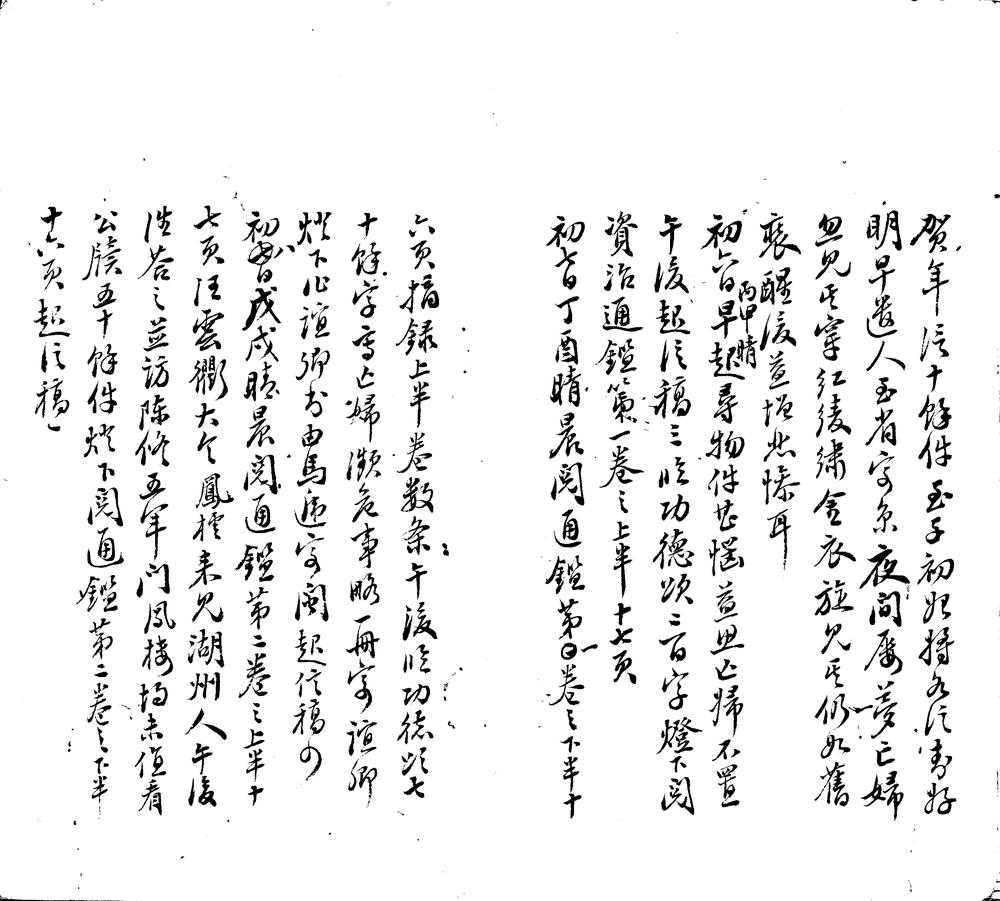 賀年信十餘件至子初始將各信封好
明早遣人至省寄京夜間屢夢亡婦
忽見其穿紅綾繡金衣旋見其仍如舊
裝醒後益增悲慘耳
初六日丙申晴早起尋物件甚惱益思亡婦不置
午後起信稿三臨功德頌二百字燈下閱
資治通鑑第一卷之上半十七頁
初七日丁酉晴晨閱通鑑第一卷之下半十
六頁摘錄上半卷數條午後臨功德頌七
十餘字寫亡婦瀕危事略一冊寄誼卿
燈下作誼卿書由馬遞寄閩起信稿四
初八日戊戌晴晨閱通鑑第二卷之上半十
七頁汪雲衢大令鳳樓來見湖州人午後
往答之並訪陳修五軍門鳳樓均未值看
公牘五十餘件燈下閱通鑑第二卷之下半
十六頁起信稿一